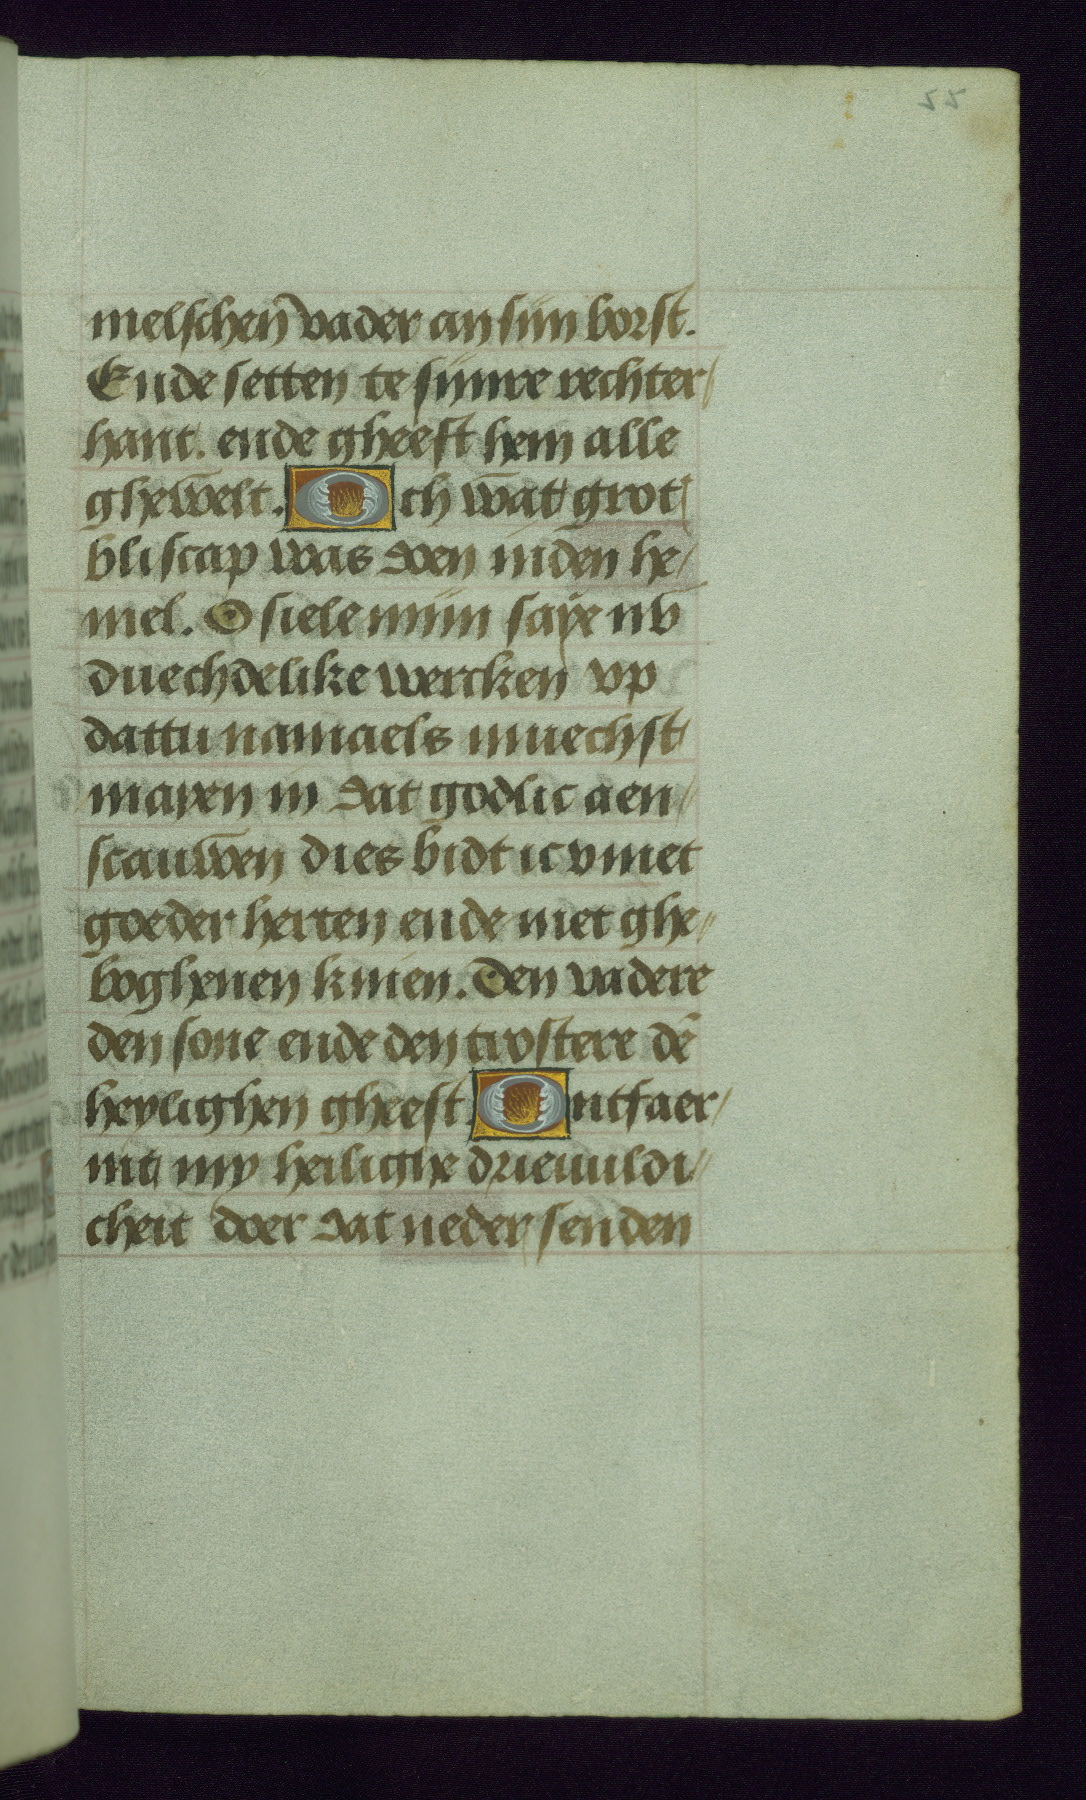 22
melschen vader an siin borst.
Ende setten te siinre rechter/
hant. ende gheeft hem alle
ghewelt. Och wat grot
bliscap was doen in den he/
mel. O siele miin saye nv
duechdelike wercken vp
dattu namaels muechst
mayen in dat godlic aen/
scauwen dies bidt ic v met
goeder herten ende met ghe/
boghenen knien. Den vadere
den sone ende den trostere dē
heylighen gheest. Ontfaer/
mt my heilighe drieuuldi/
cheit doer dat neder senden